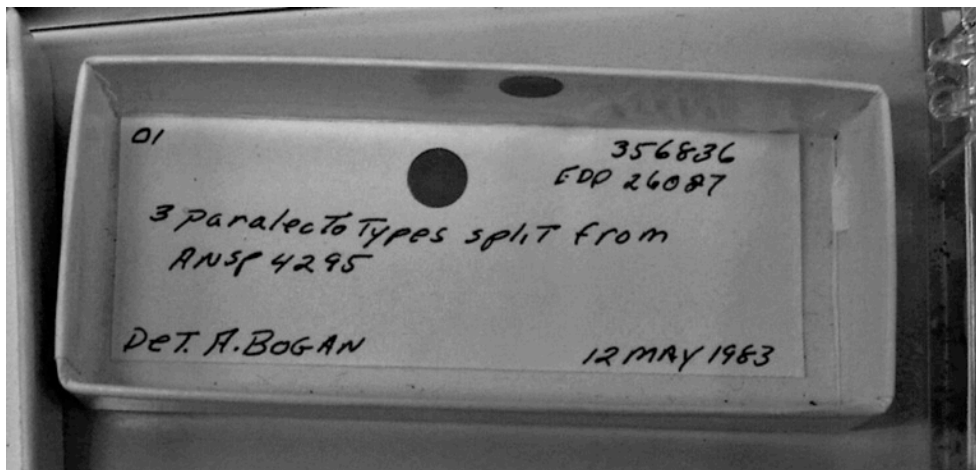 01
356836
EDP 26087
3 paralectoTypes split from
ANSP 4295
DeT. A. BOGAN
12 MAY 1983